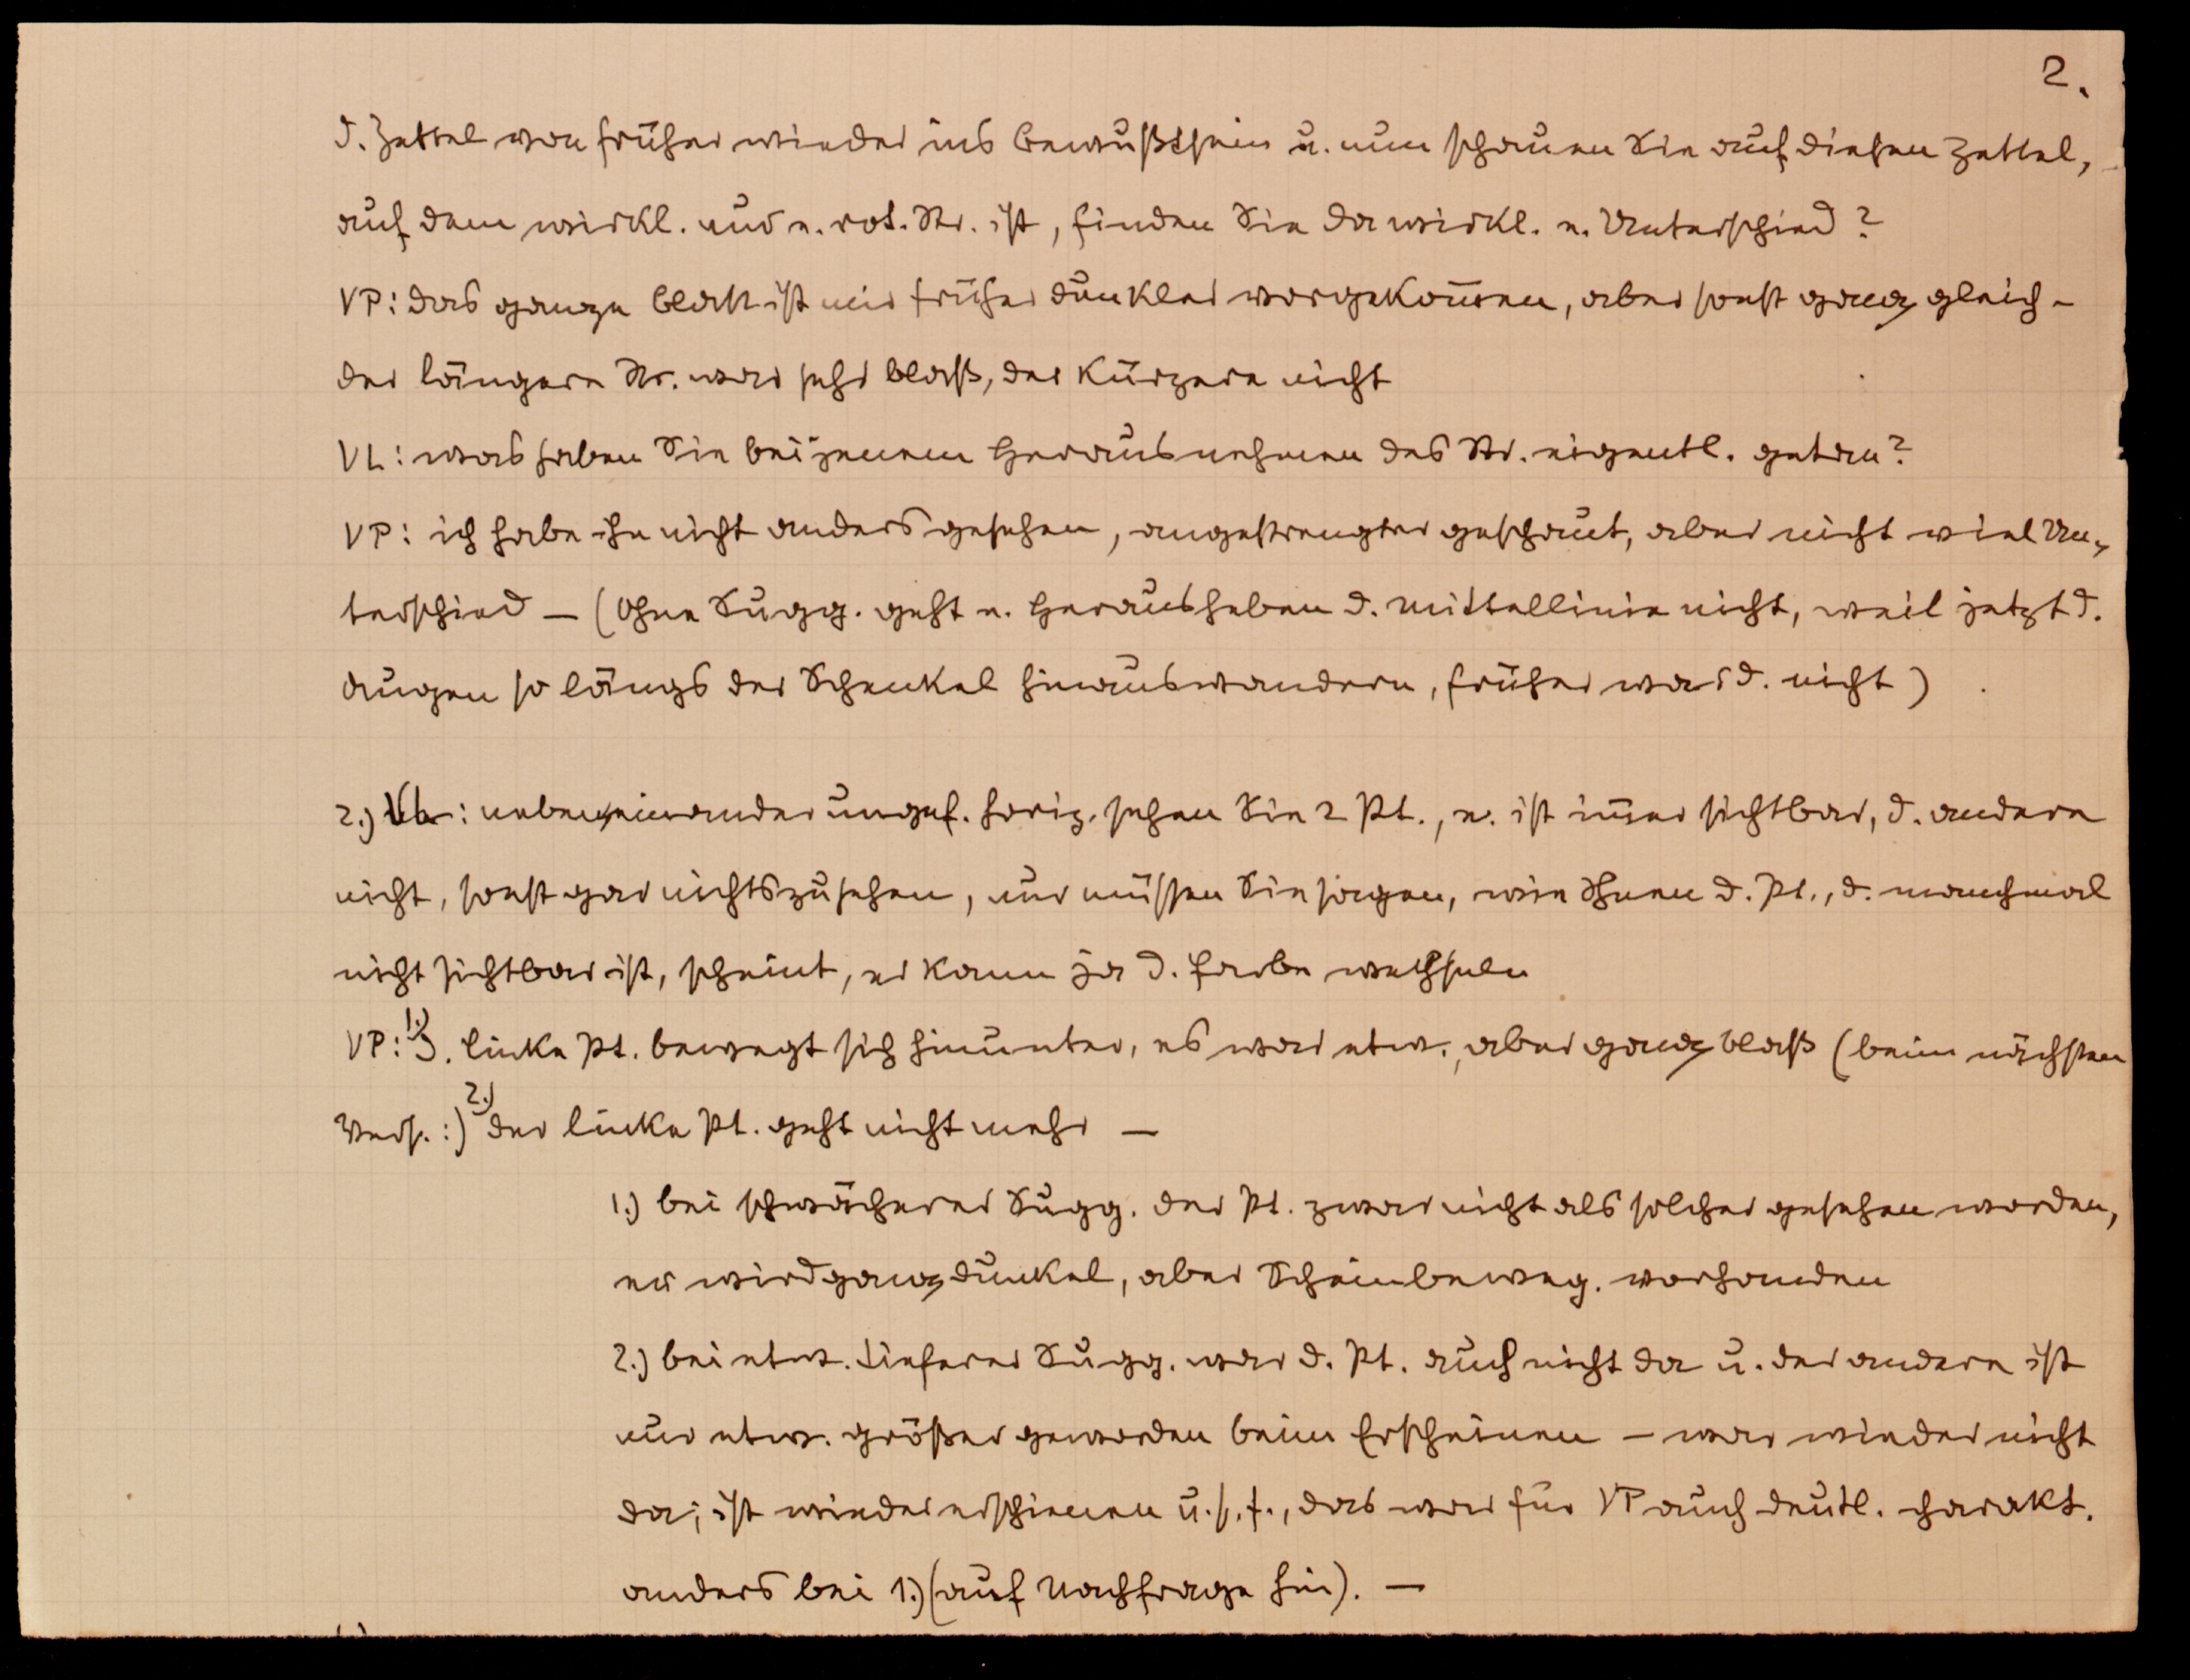 2.
d. Zettel von früher wieder ins Bewußtsein u. nun schauen Sie auf diesen Zettel,
auf dem wirkl. nur e. rot. Str. ist, finden Sie da wirkl. e. Unterschied?
VP: das ganze Blatt ist mir früher dunkler vorgekom̅en, aber sonst ganz gleich –
der längere Str. war sehr blaß, der kürzere nicht
VL: was haben Sie bei jenem Herausnehmen des Str. eigentl. getan?
VP: ich habe ihn nicht anders gesehen, angestrengter geschaut, aber nicht viel Un-
terschied – (Ohne Sugg. geht e. Herausheben d. Mittellinie nicht, weil jetzt d.
Augen so längs der Schenkel hinauswandern, früher war d. nicht)
2.) VL: nebeneinander ungef. horiz. sehen Sie 2 Pt., e. ist im̅er sichtbar, d. andere
nicht, sonst gar nichts zu sehen, nur müssen Sie sagen, wie Ihnen d. Pt., d. manchmal
nicht sichtbar ist, scheint, er kann ja d. Farbe wechseln
VP: 1.) D. linke Pt. bewegt sich hinunter, es war etw., aber ganz blaß (beim nächsten
Vers.:) 2.) der linke Pt. geht nicht mehr –
1.) bei schwächerer Sugg. der Pt. zwar nicht als solcher gesehen worden,
er wird ganz dunkel, aber Scheinbeweg. vorhanden
2.) bei etw. tieferer Sugg. war d. Pt. auch nicht da u. der andere ist
nur etw. größer geworden beim Erscheinen – war wieder nicht
da; ist wieder erschienen u.s.f., das war für VP auch deutl. charakt.
anders bei 1.) (auf Nachfrage hin). –